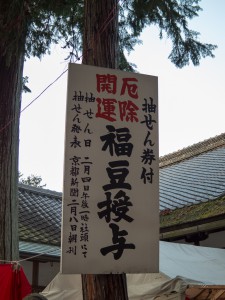 抽せん券付
厄除
開運
福豆授与
抽せん日 二月四日午后一時社頭にて
抽せん発表 京都新聞二月八日朝刊